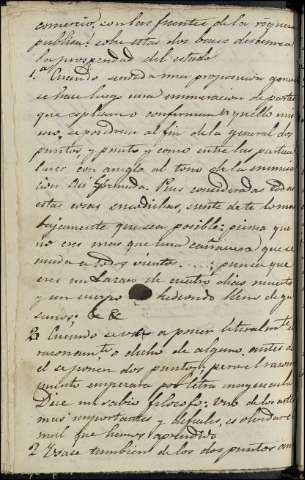 comercio, son las fuentes de la riqueza
publica: sobre estas dos bases descansa
la prosperidad del estado
1.ª Cuando sentada una proposicion general
se hace luego una enumeracion de partes
que esplican o confirman aquello mismo
se pondran al fin de la general dos
puntos, y punto y coma entre las particu
lares con arreglo al tono de la enumera
cion Fr. Granada. Pues consideradas todas
estas cosas
bajamente que sea posible: piensa que
no eres mas que una cañavera que se
muda a todos vientos ....; piensa que
eres un Lazaro de cuatro dias muerto
y un cuerpo hediondo lleno de gu
sanos: & &
2. Cuando se va a poner literalmte
razonamto o dicho de alguno, antes de
el se ponen dos puntos, pero el razona
miento empezara por letra mayuscula
Dice un sabio filosofo: Una de las artes
mas importantes y dificiles, es olvidar el
mal que hemos aprendido
2 Usase tambien de los dos puntos an